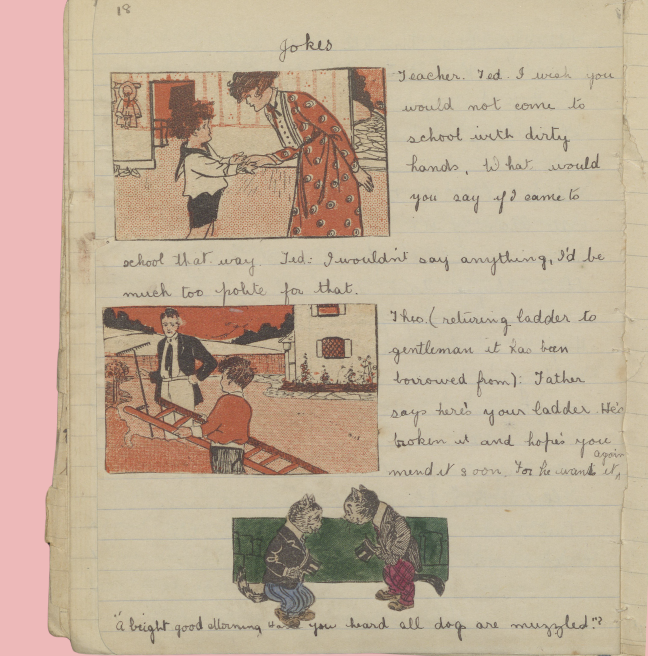 18
Jokes
Teacher. Ted. I wish you
would not come to
school with dirty
hands. What would
you say if I came to
school that way. Ted: I wouldn't say anything, I'd be
much too polite for that.
Theo. (returing ladder to
gentleman it has been
borrowed from): Father
says here's your ladder. He's
broken it and hopes you
mend it soon. For he want it again.
"A bright good Morning, have you heard all dogs are muzzled."?